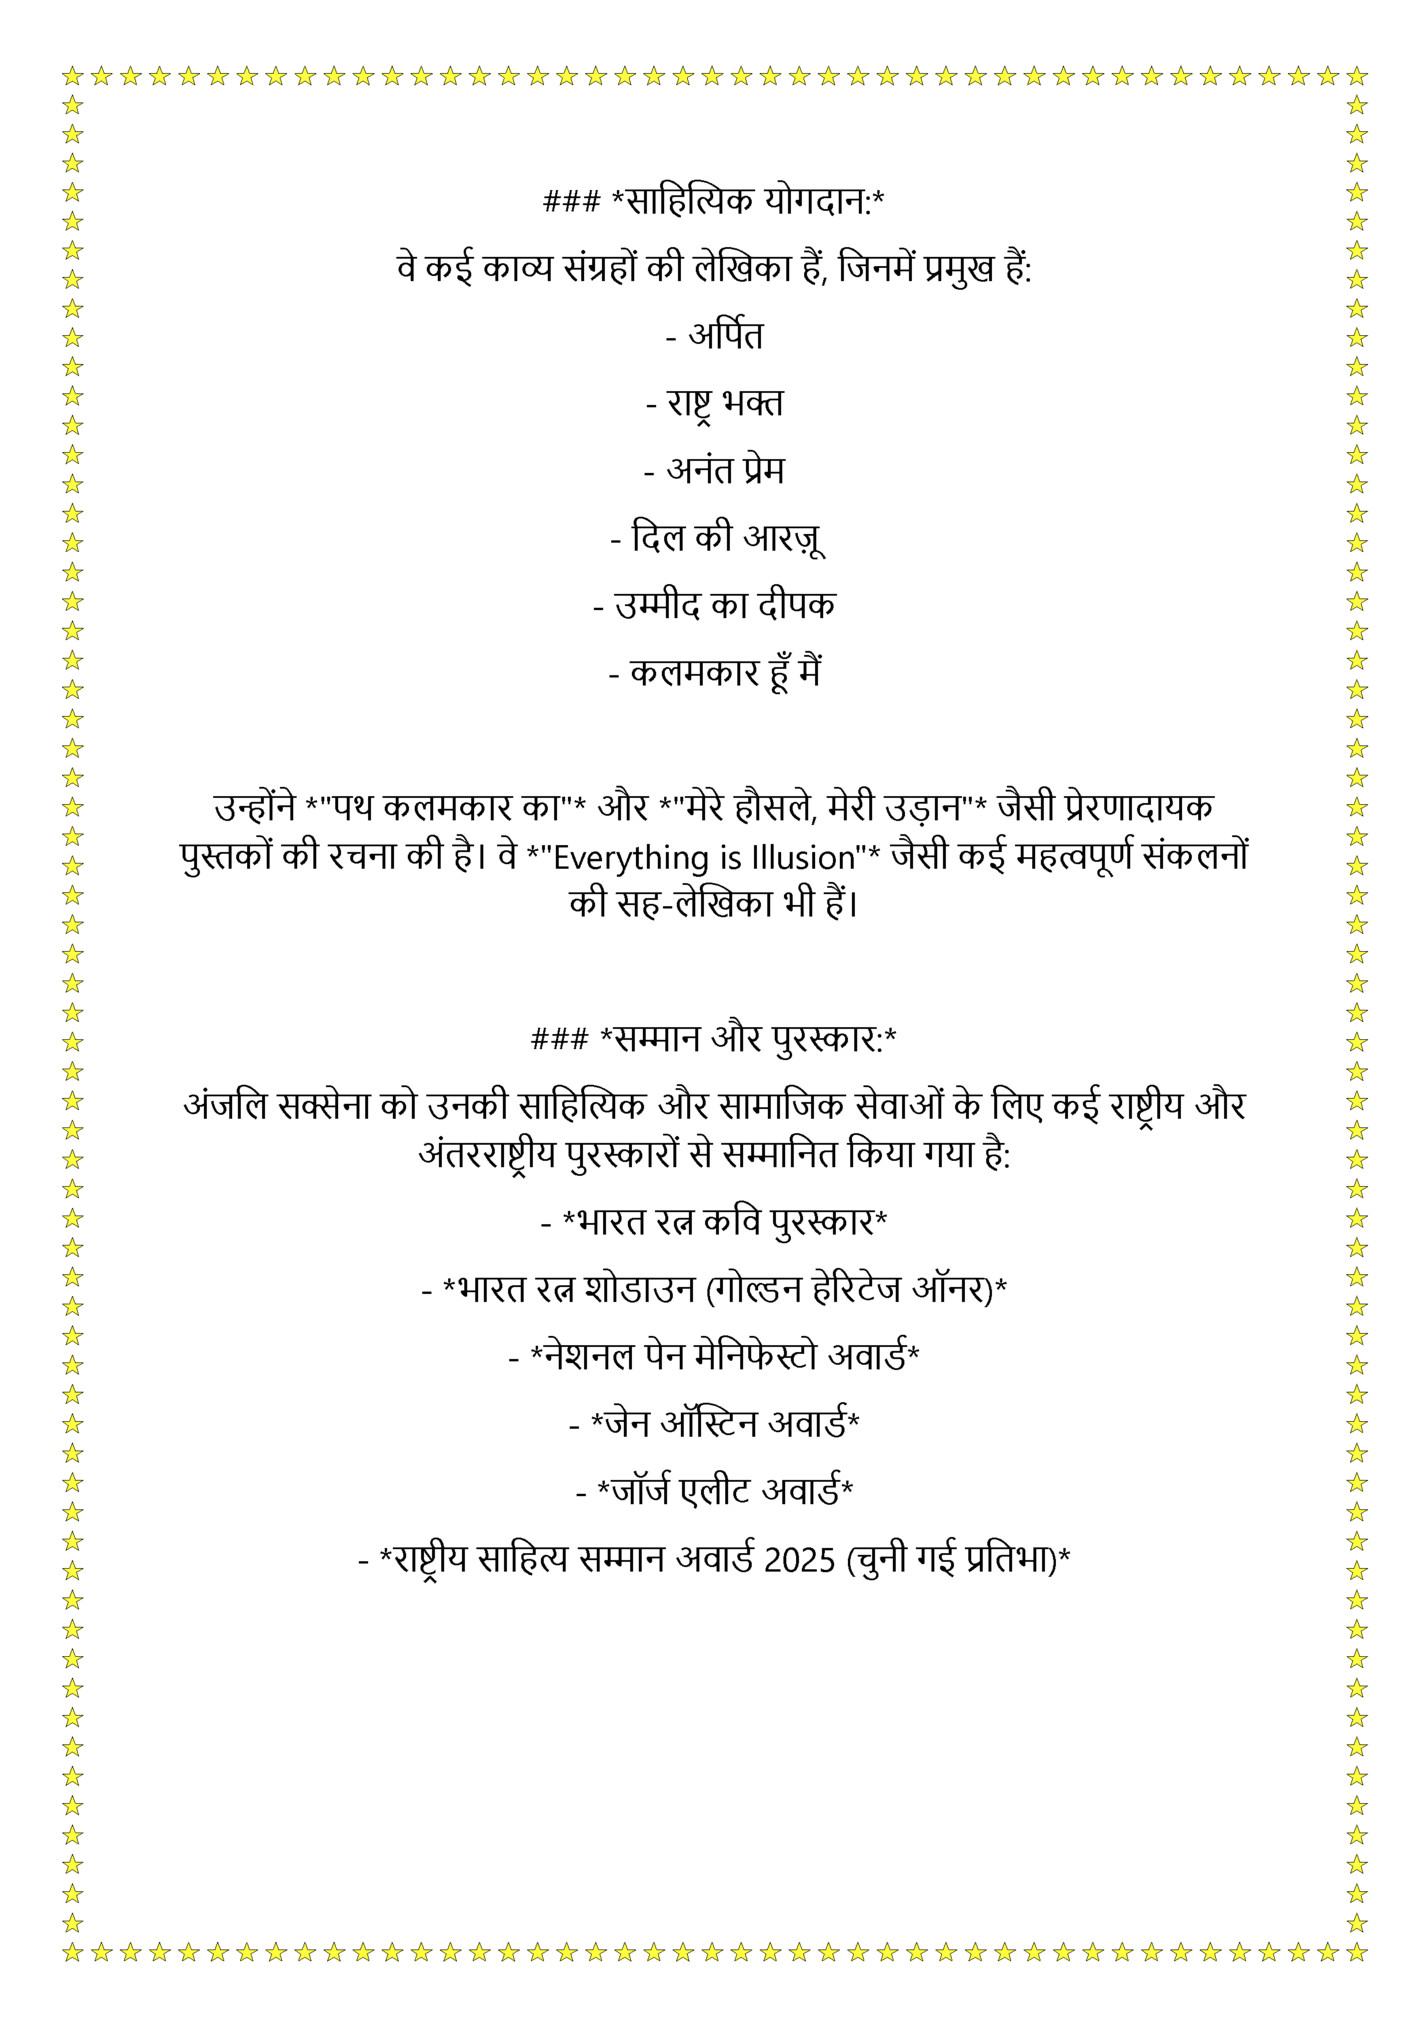 ### *साहित्यिक योगदान:*
वे कई काव्य संग्रहों की लेखिका हैं, जिनमें प्रमुख हैं:
- अर्पित
- राष्ट्र भक्त
- अनंत प्रेम
- दिल की आरज़ू
- उम्मीद का दीपक
- कलमकार हूँ मैं
उन्होंने *"पथ कलमकार का"* और *"मेरे हौसले, मेरी उड़ान"* जैसी प्रेरणादायक
पुस्तकों की रचना की है। वे *"Everything is Illusion"* जैसी कई महत्वपूर्ण संकलनों
की सह-लेखिका भी हैं।
### *सम्मान और पुरस्कार:*
अंजलि सक्सेना को उनकी साहित्यिक और सामाजिक सेवाओं के लिए कई राष्ट्रीय और
अंतरराष्ट्रीय पुरस्कारों से सम्मानित किया गया है:
- *भारत रत्न कवि पुरस्कार*
- *भारत रत्न शोडाउन (गोल्डन हेरिटेज ऑनर)*
- *नेशनल पेन मेनिफेस्टो अवार्ड*
- *जेन ऑस्टिन अवार्ड*
- *जॉर्ज एलीट अवार्ड*
- *राष्ट्रीय साहित्य सम्मान अवार्ड 2025 (चुनी गई प्रतिभा)*